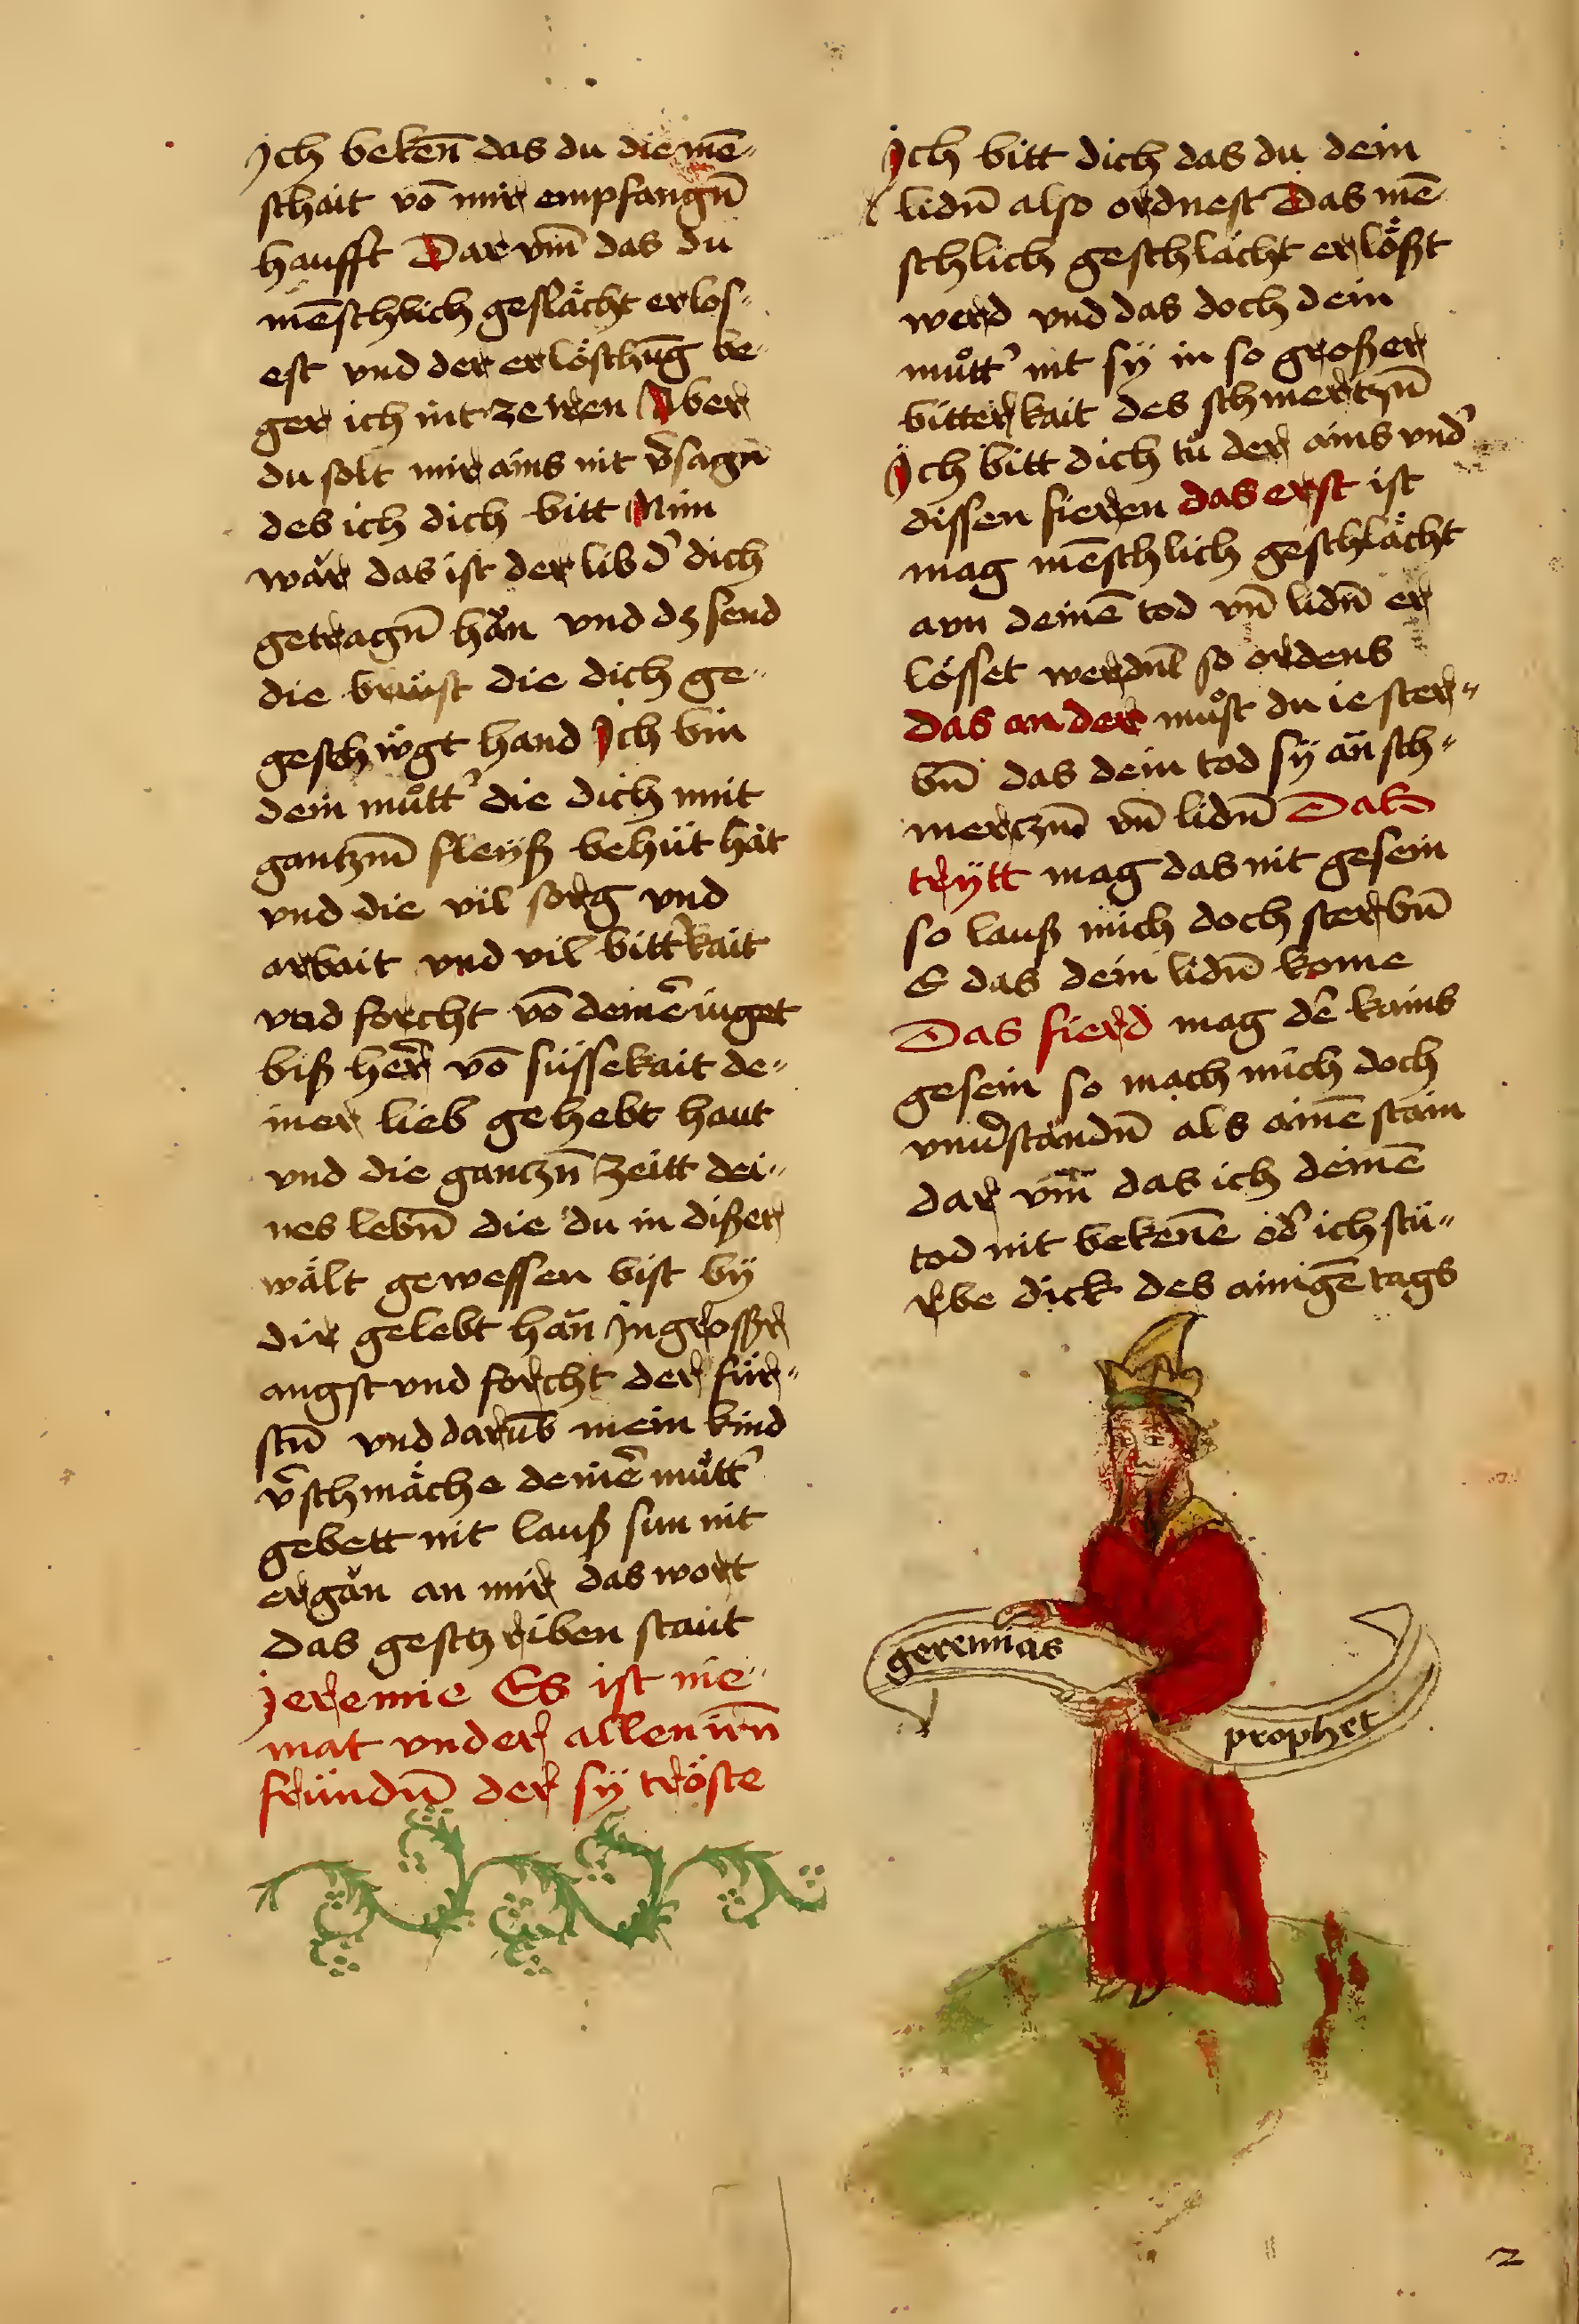 Ich bekēn das du die mē-
schait vō mir empfangn̄
haufft Dar vm̄ das du
mēschlich geslächt erlos-
est vnd der erlöschūg be-
ger ich nit ze weren Aber
du solt mir ains nit v̄sagn̄
des ich dich bitt Nim
war das ist der lib d' dich
getragn̄ hän vnd dz send
die brüst die dich ge-
geschwͤgt hand Ich bin
dein mutt' die dich mit
gantzm̄ fleyß behüt hät
vnd die vil sorg vnd
arbait vnd vil bitt'kait
vnd forcht vō deinē iuget
biß her vō süssekait de-
iner lieb gehebt haut
vnd die gantzn̄ zeitt dei-
nes lebn̄ die du in dißer
wält gewessen bist bÿ
dir gelebt hän In grosßr
angst vnd forcht der für-
stn̄ vnd darūb mein kind
v̄schmäche deinē mutt'
gebett nit lauß sun nit
ergän an mir das wort
das geschriben staut
Jeremie Es ist nie-
mat vnder allen irn̄
fründn̄ der sÿ tröste
Ich bitt dich das du dein
lidn̄ also ordnest Das mē
schlich geschlächt erlößt
werd vnd das doch dein
mutt' nit sÿ in so großer
bitterkait des schmertzn̄
Ich bitt dich tů der ains vnd'
dissen fieren das erst ist
mag mēschlich geschlächt
aun deinē tod vn̄ lidn̄ er
lösset werdn̄ so ordens
das ander můst du ie ster-
bn̄ das dein tod sÿ än sch-
merczn̄ vn̄ lidn̄ Das
trÿtt mag das nit gesein
so lauß mich doch sterbn̄
E das dein lidn̄ kome
Das fierd mag dē kains
gesein so mach mich doch
vnv̄standn̄ als ainē stain
dar vm̄ das ich deinē
tod nit bekenēe od' ich stü-
rbe dick des ainigē tags
geremias
prophet
2